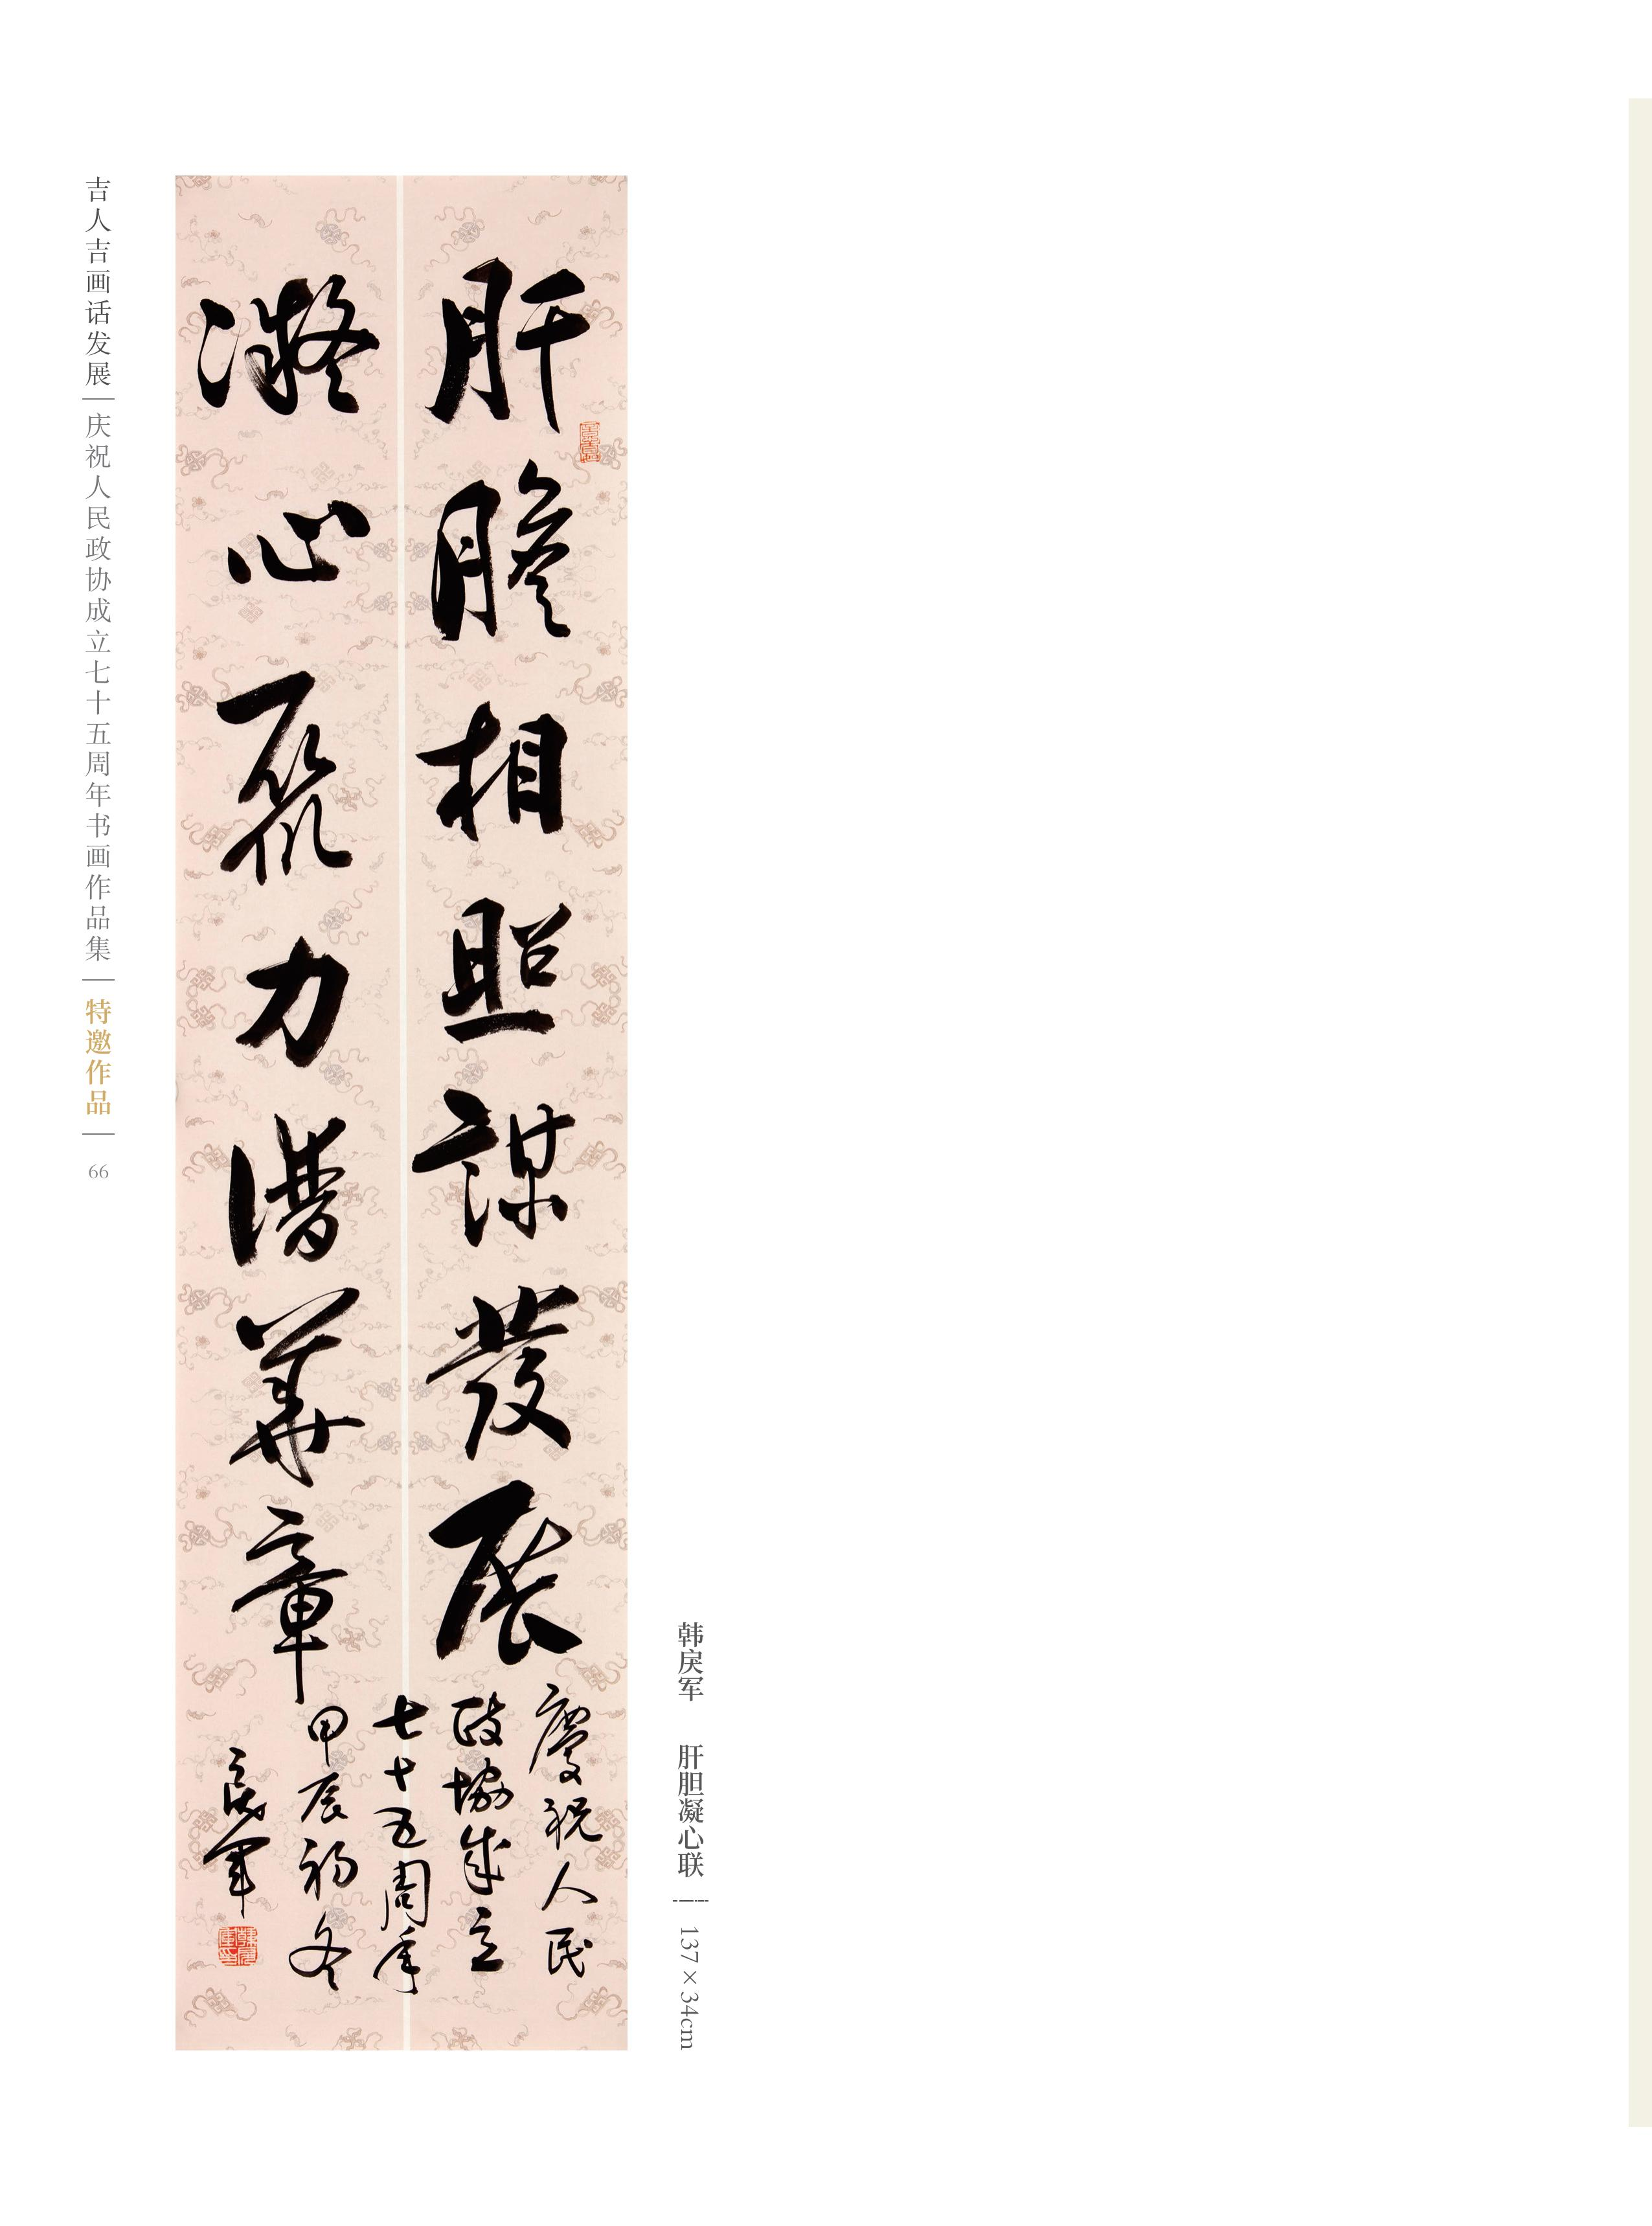 韩戾军 肝胆凝心联 137×34cm
肝膽相照謀發展
慶祝人民
政協成立
七十五周年
凝心聚力譜華章
甲辰初冬
戾軍
吉人吉画话发展 庆祝人民政协成立七十五周年书画作品集 特邀作品 66